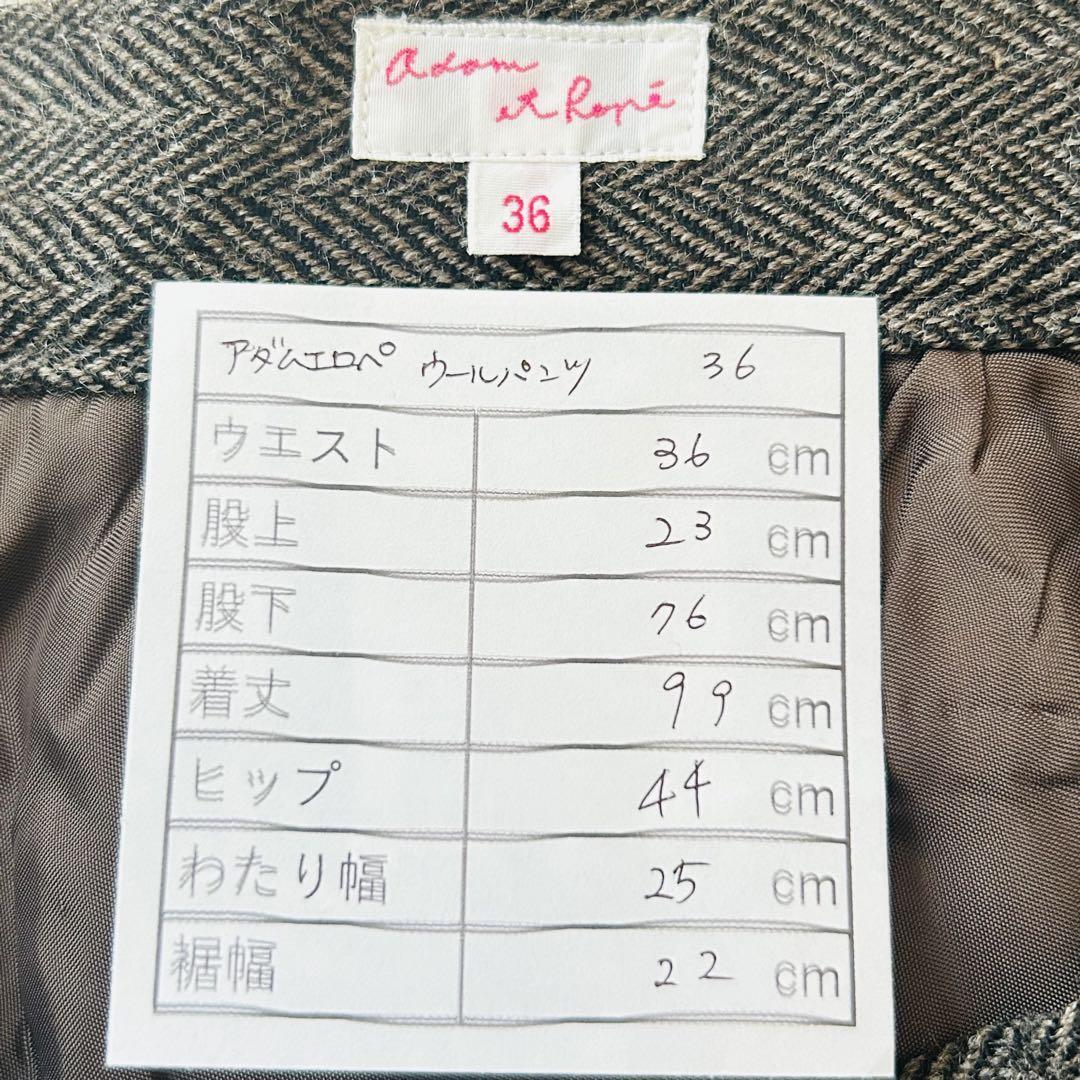 Adam
et Ropé
36
アダムエロペ ウールパンツ 36
ウエスト 36 cm
股上 23 cm
股下 76 cm
着丈 99 cm
ヒップ 44 cm
わたり幅 25 cm
裾幅 22 cm